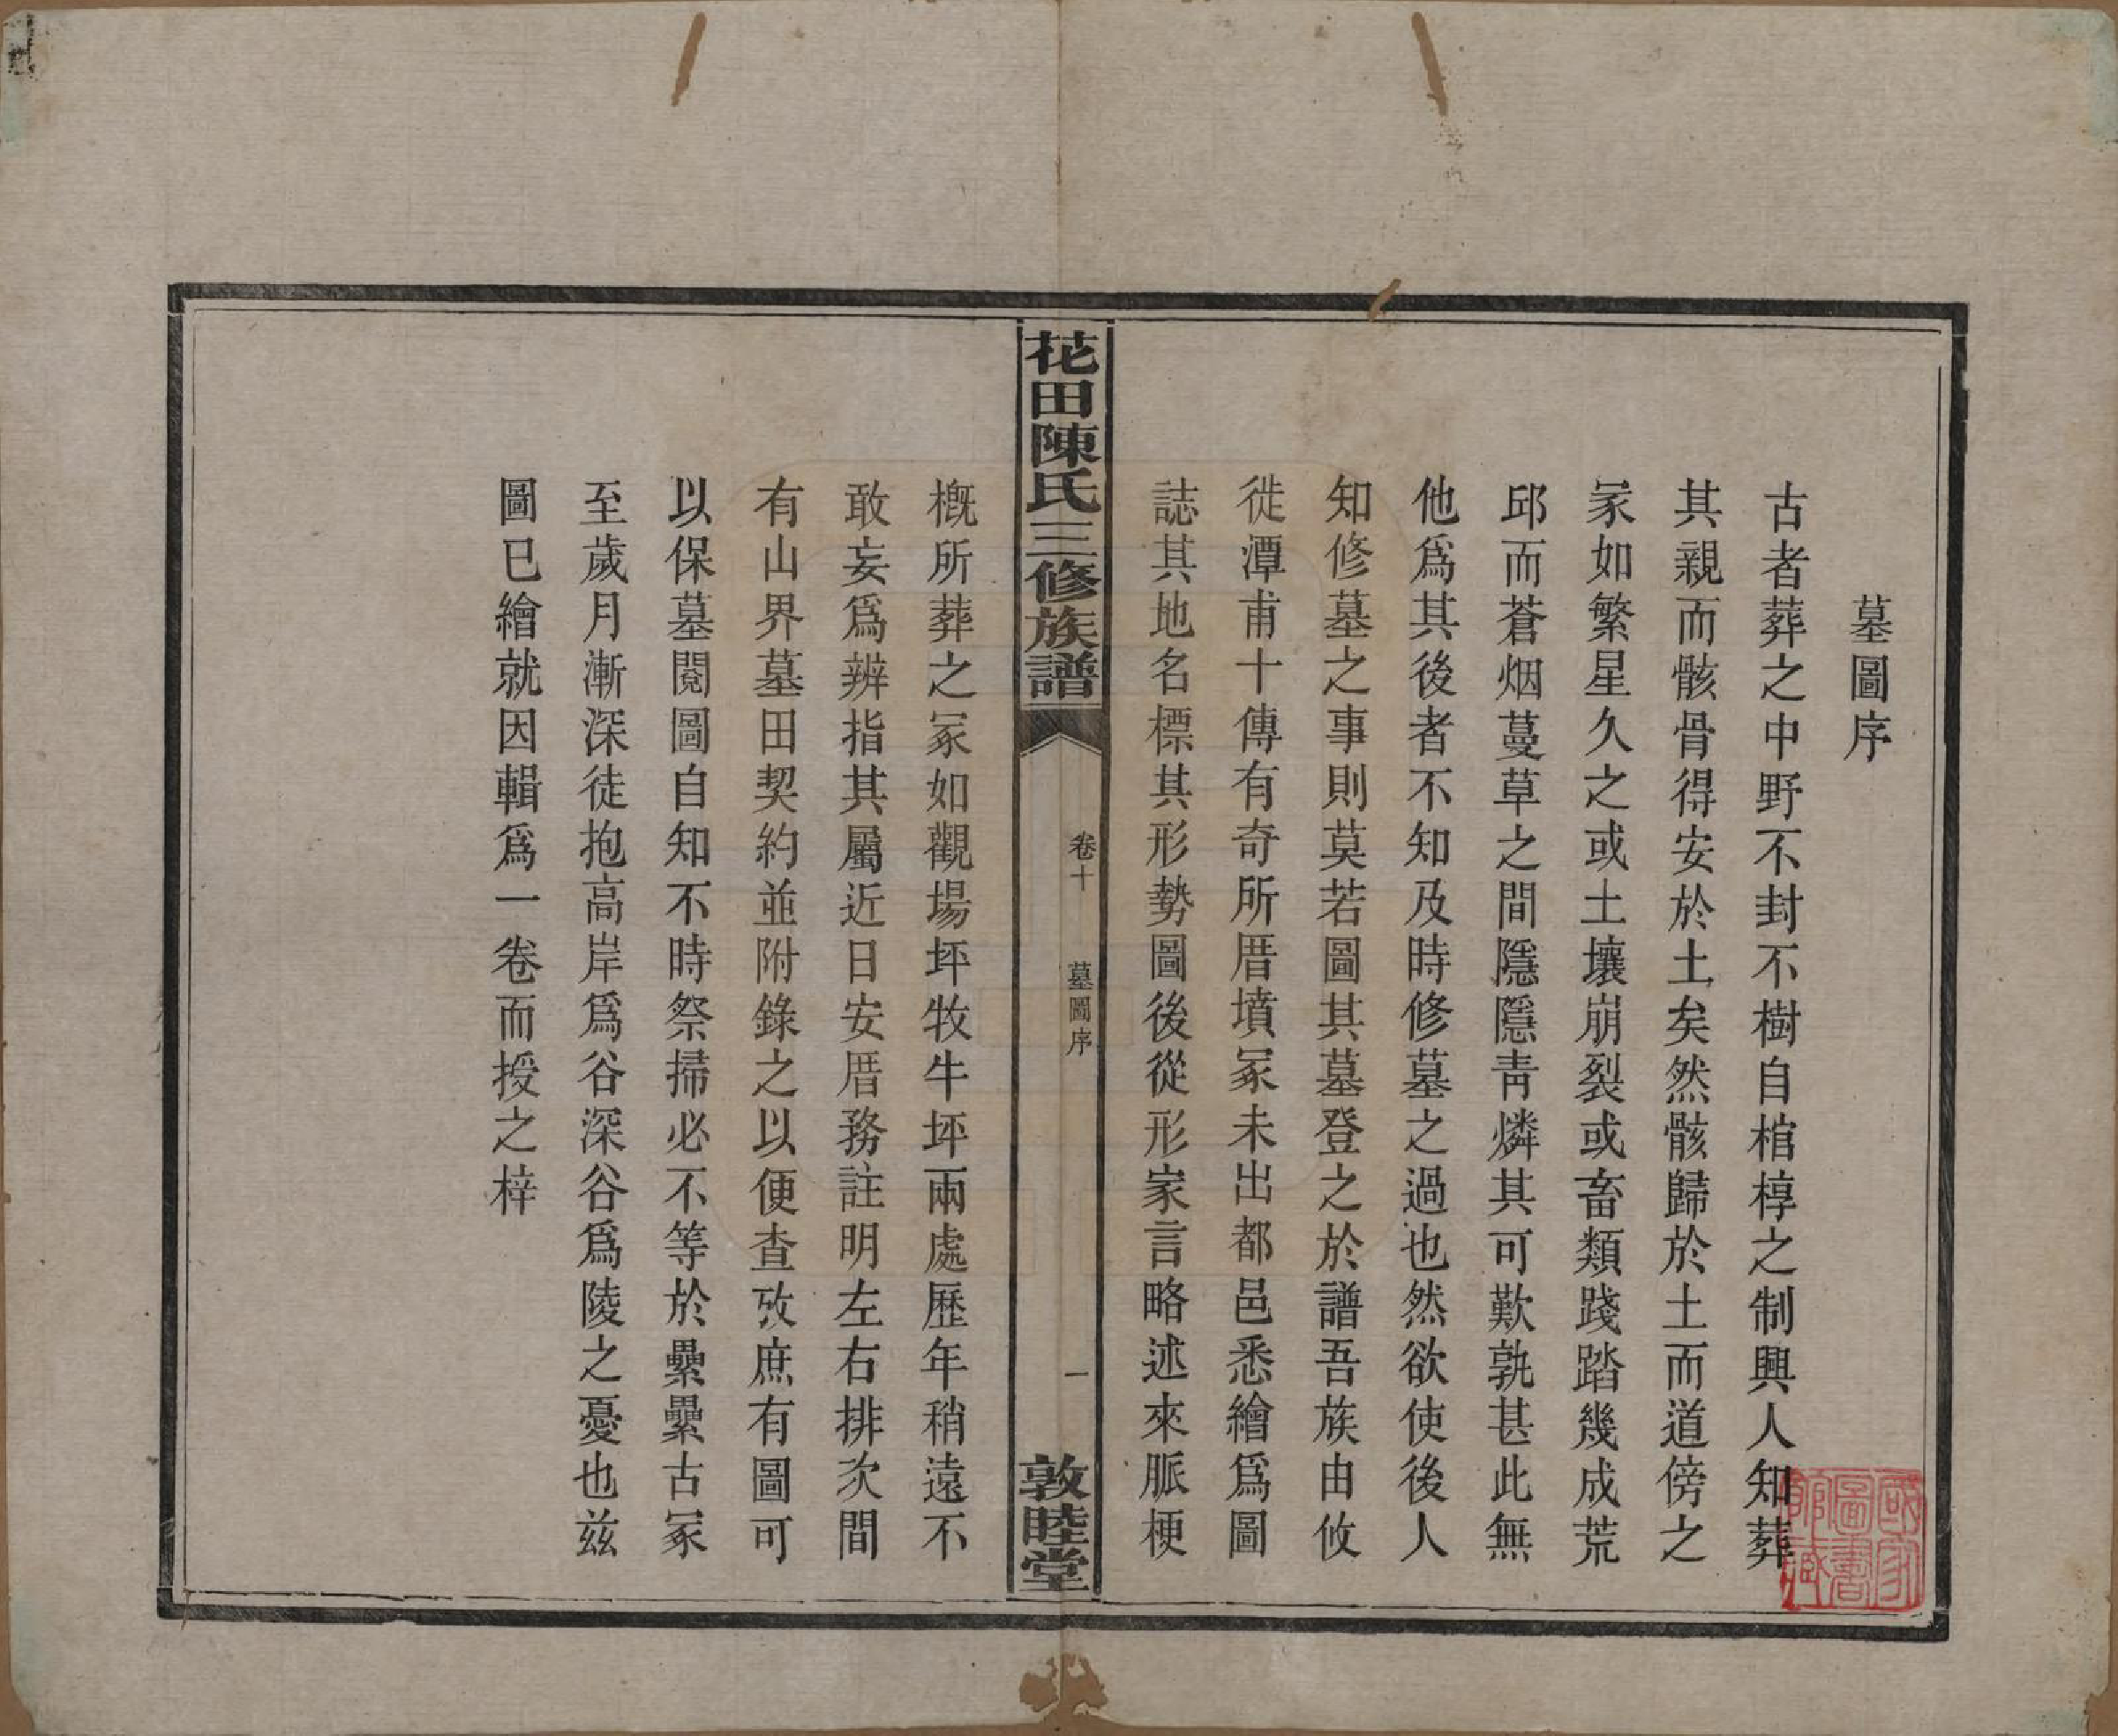 墓圖序
古者葬之中野不封不樹自棺椁之制興人知葬
其親而骸骨得安於土矣然骸歸於土而道傍之
冢如繁星久之或土壤崩裂或畜類踐踏幾成荒
邱而蒼烟蔓草之間隱隱靑燐其可歎孰甚此無
他爲其後者不知及時修墓之過也然欲使後人
知修墓之事則莫若圖其墓登之於譜吾族由攸
徙潭甫十傳有奇所厝墳冢未出都邑悉繪爲圖
誌其地名標其形勢圖後從形家言略述來脈梗
花田陳氏三修族譜
卷十
墓圖序
一
敦睦堂
槪所葬之冢如觀場坪牧牛坪兩處歷年稍遠不
敢妄爲辨指其屬近日安厝務註明左右排次間
有山界墓田契約並附錄之以便査攷庶有圖可
以保墓閱圖自知不時祭掃必不等於纍纍古冢
至歲月漸深徒抱高岸爲谷深谷爲陵之憂也兹
圖已繪就因輯爲一卷而授之梓
國家
圖書
館藏